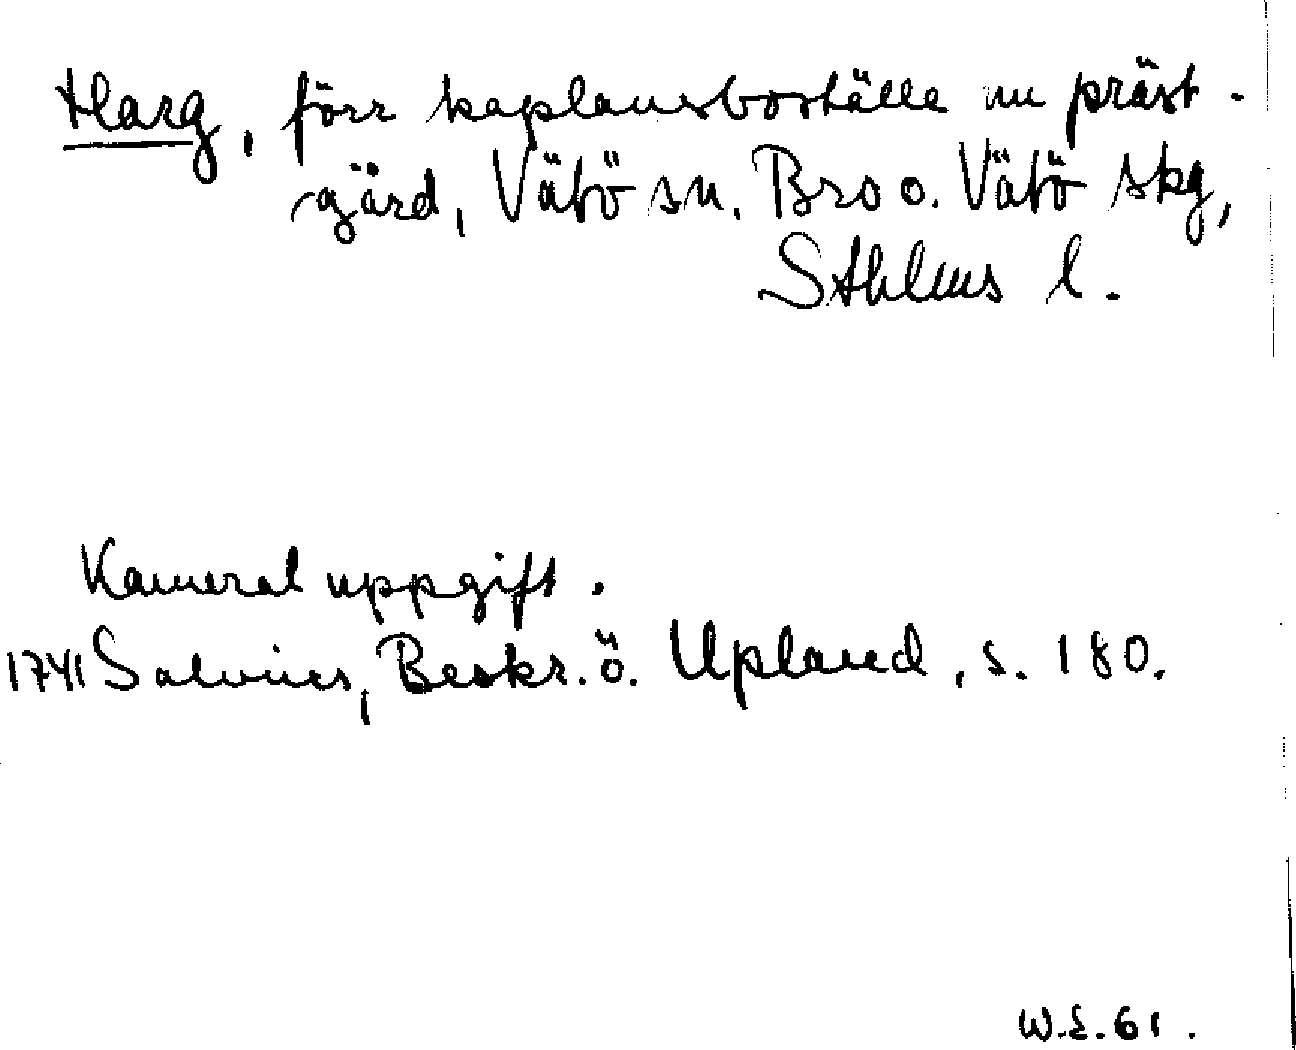 Harg, förr kaplansboställe nu präst-
gård, Vätö sn. Bro o. Vätö skg,
Sthlms l.
Kameral uppgift.
1741 Salvius, Beskr. ö. Upland, s. 180.
W.E.61.